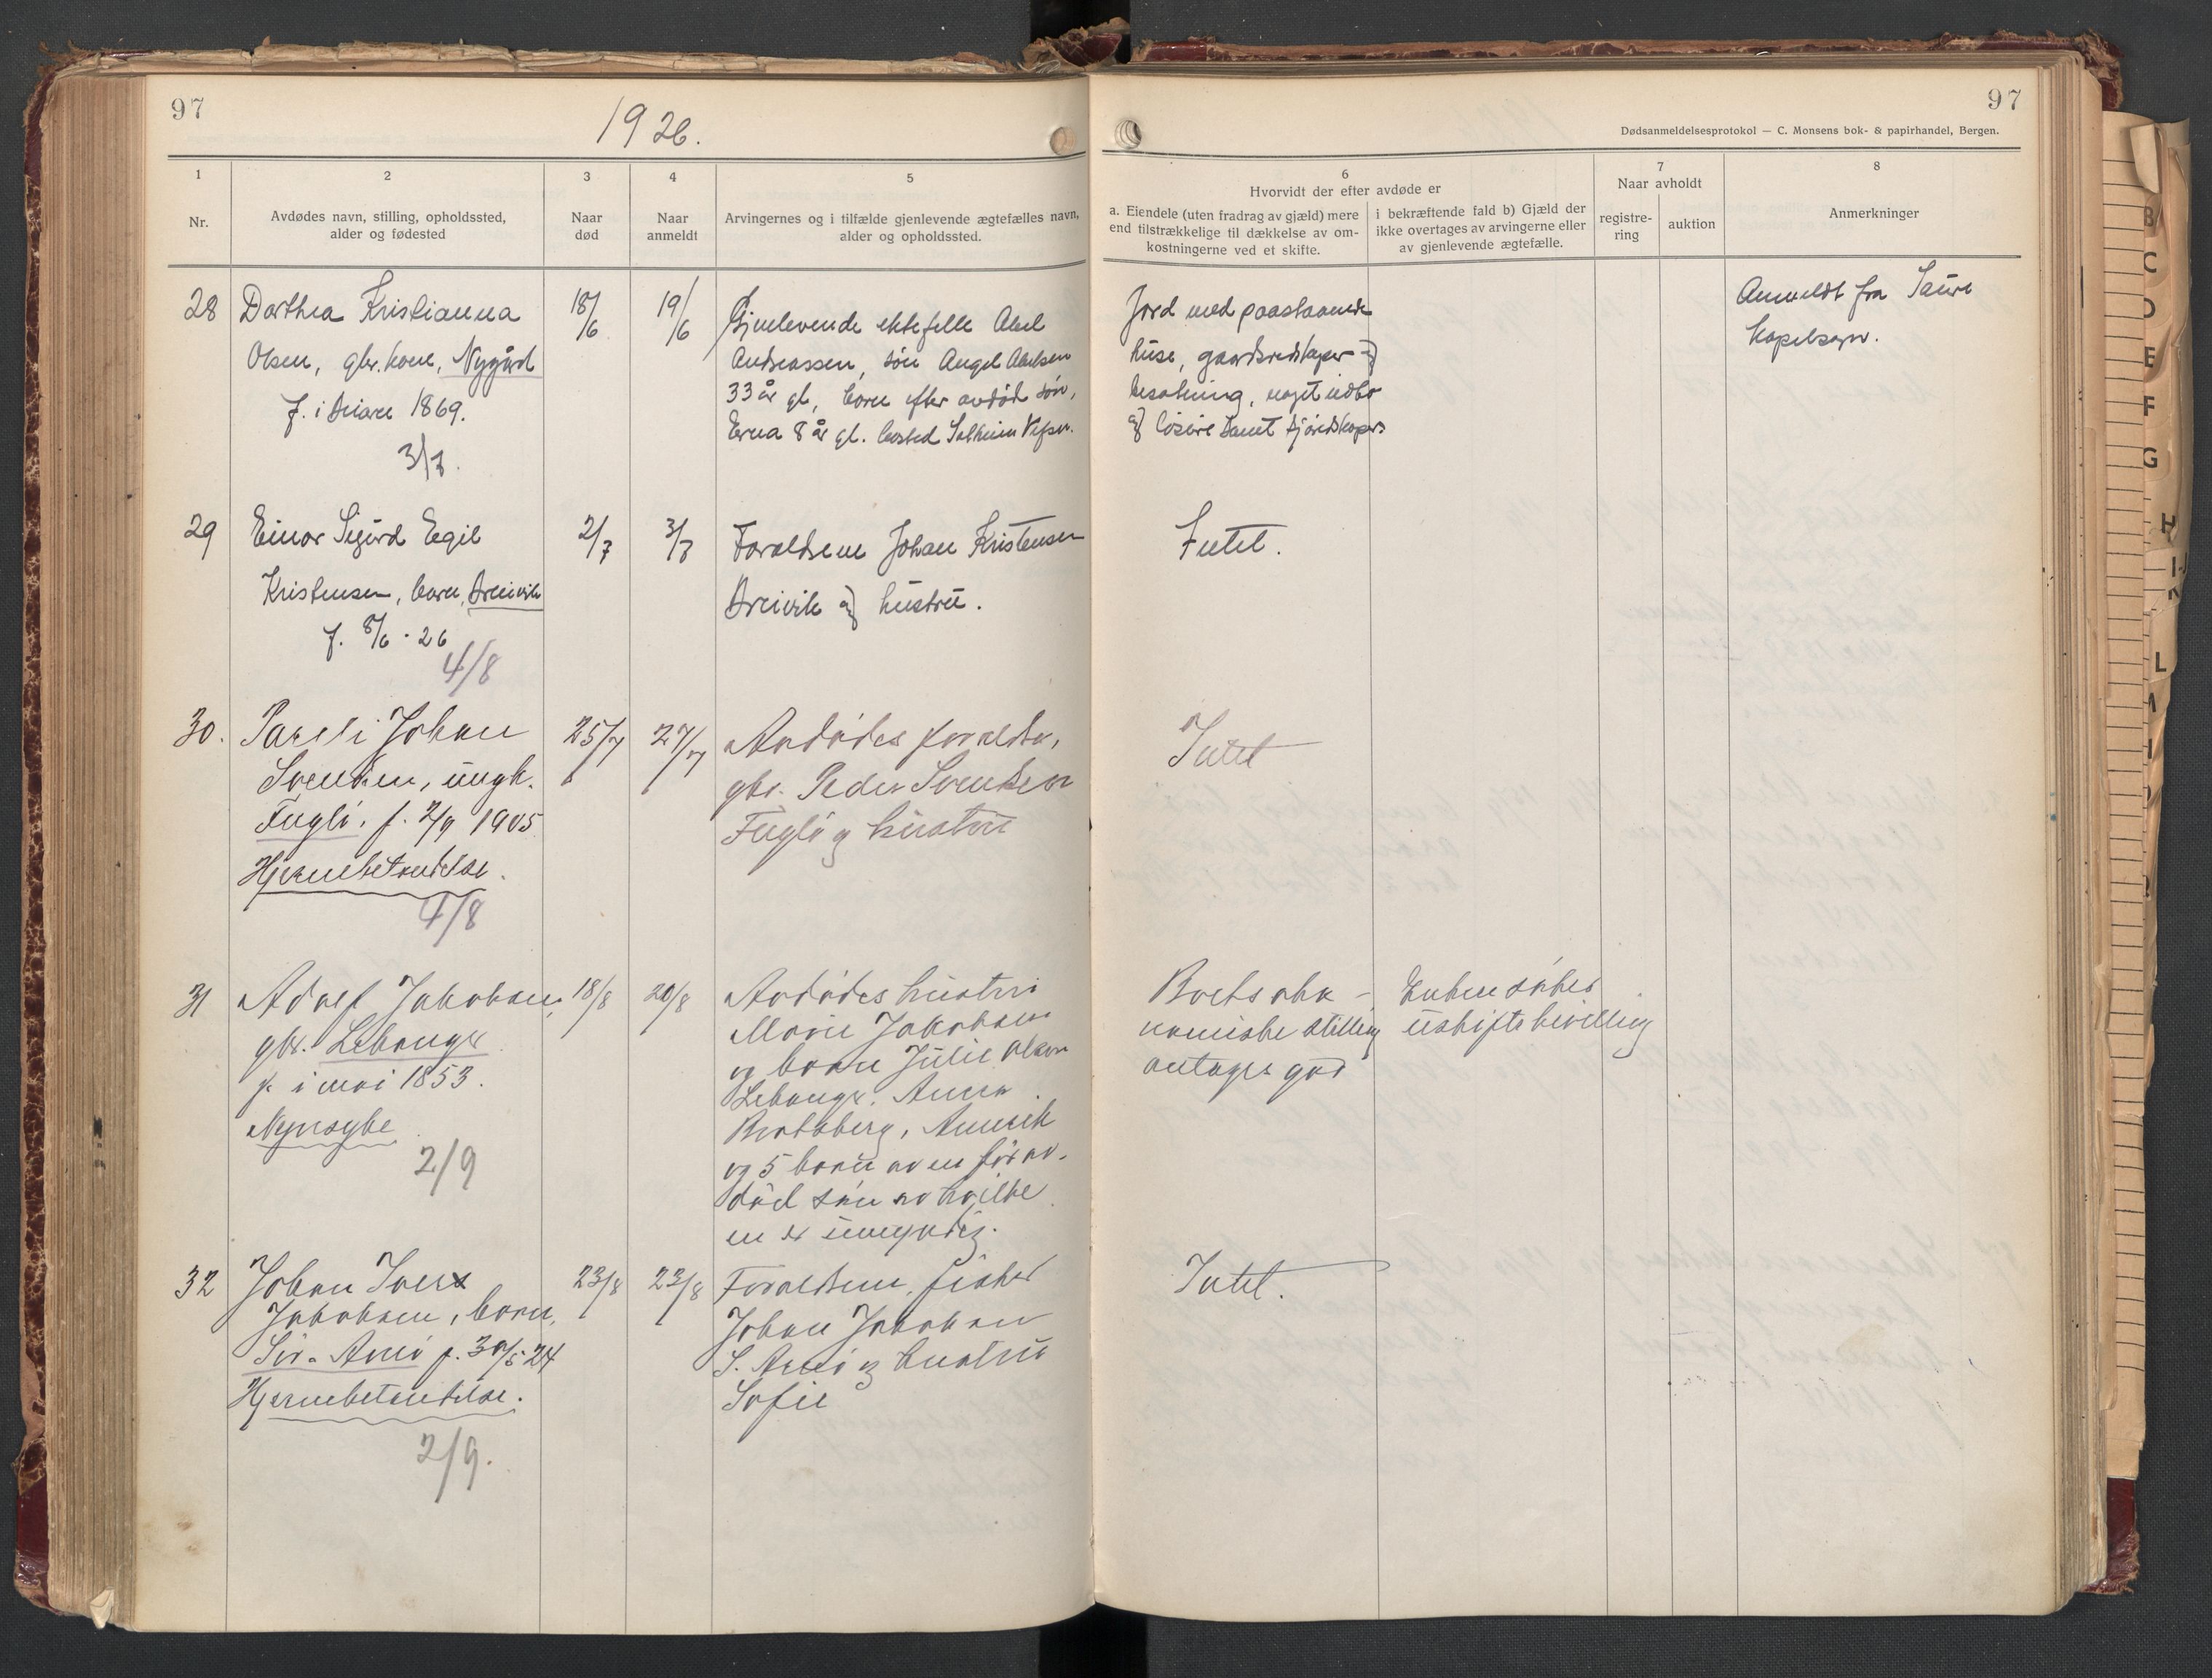 97
1926.
97
Dødsanmeldelsesprotokol — C. Monsens bok- & papirhandel, Bergen.
1
Nr.
2
Avdødes navn, stilling, opholdssted,
alder og fødested
3
Naar
død
4
Naar
anmeldt
5
Arvingernes og i tilfælde gjenlevende ægtefælles navn,
alder og opholdssted.
6
Hvorvidt der efter avdøde er
a. Eiendele (uten fradrag av gjæld) mere
end tilstrækkelige til dækkelse av om-
kostningerne ved et skifte.
i bekræftende fald b) Gjæld der
ikke overtages av arvingerne eller
av gjenlevende ægtefælle.
7
Naar avholdt
registre-
ring
auktion
8
Anmerkninger
28
Dorthea Kristianna
Olsen, gbr. kone, Nygård
f. i 1869.
3/7.
18/6
19/6
Gjenlevende ektefelle Abel
Andreassen, søn Angel Abelsen
33 år gl, barn efter avdød søn,
Erna 8 år gl. bosted Solheim Vefsn.
Jord med paastaaende
huse, gaardsredskaper og
besætning, noget indbo
og løsøre samt
Anmeldt fra Saura
kapelsogn.
29
Einar Sigurd Egil
Kristensen, barn, Breivik
f. 8/6 - 26
4/8
2/7
3/7
Foreldrene Johan Kristensen
Breivik og hustru.
Intet.
30.
Pareli Johan
Svendsen, ungk.
Fuglø, f. 2/9 1905
Hjernebetendelse.
4/8
25/7
27/7
Avdødes foreldre,
gbr. Peder Svendsen
Fuglø og hustru
Intet
31
Adolf Jakobsen,
gbr.
f. i mai 1853.
Nyresyke
2/9
18/8
20/8
Avdødes hustru
Marie Jakobsen
og barn Julie Olsen
Anna
og 5 barn av en før av-
død søn av hvilke
en er umyndig.
Boets øko-
nomiske stilling
antages god
Enken søker
uskiftebevilling
32
Johan Ivers
Jakobsen, barn,
Sør-Arnø f. 30/5 24
Hjernebetendelse.
2/9.
23/8
23/8
Foreldrene, fisker
Johan Jakobsen
S. Arnø og hustru
Sofie
Intet.
B
C
D
E
F
G
H
I-J
K
L
M